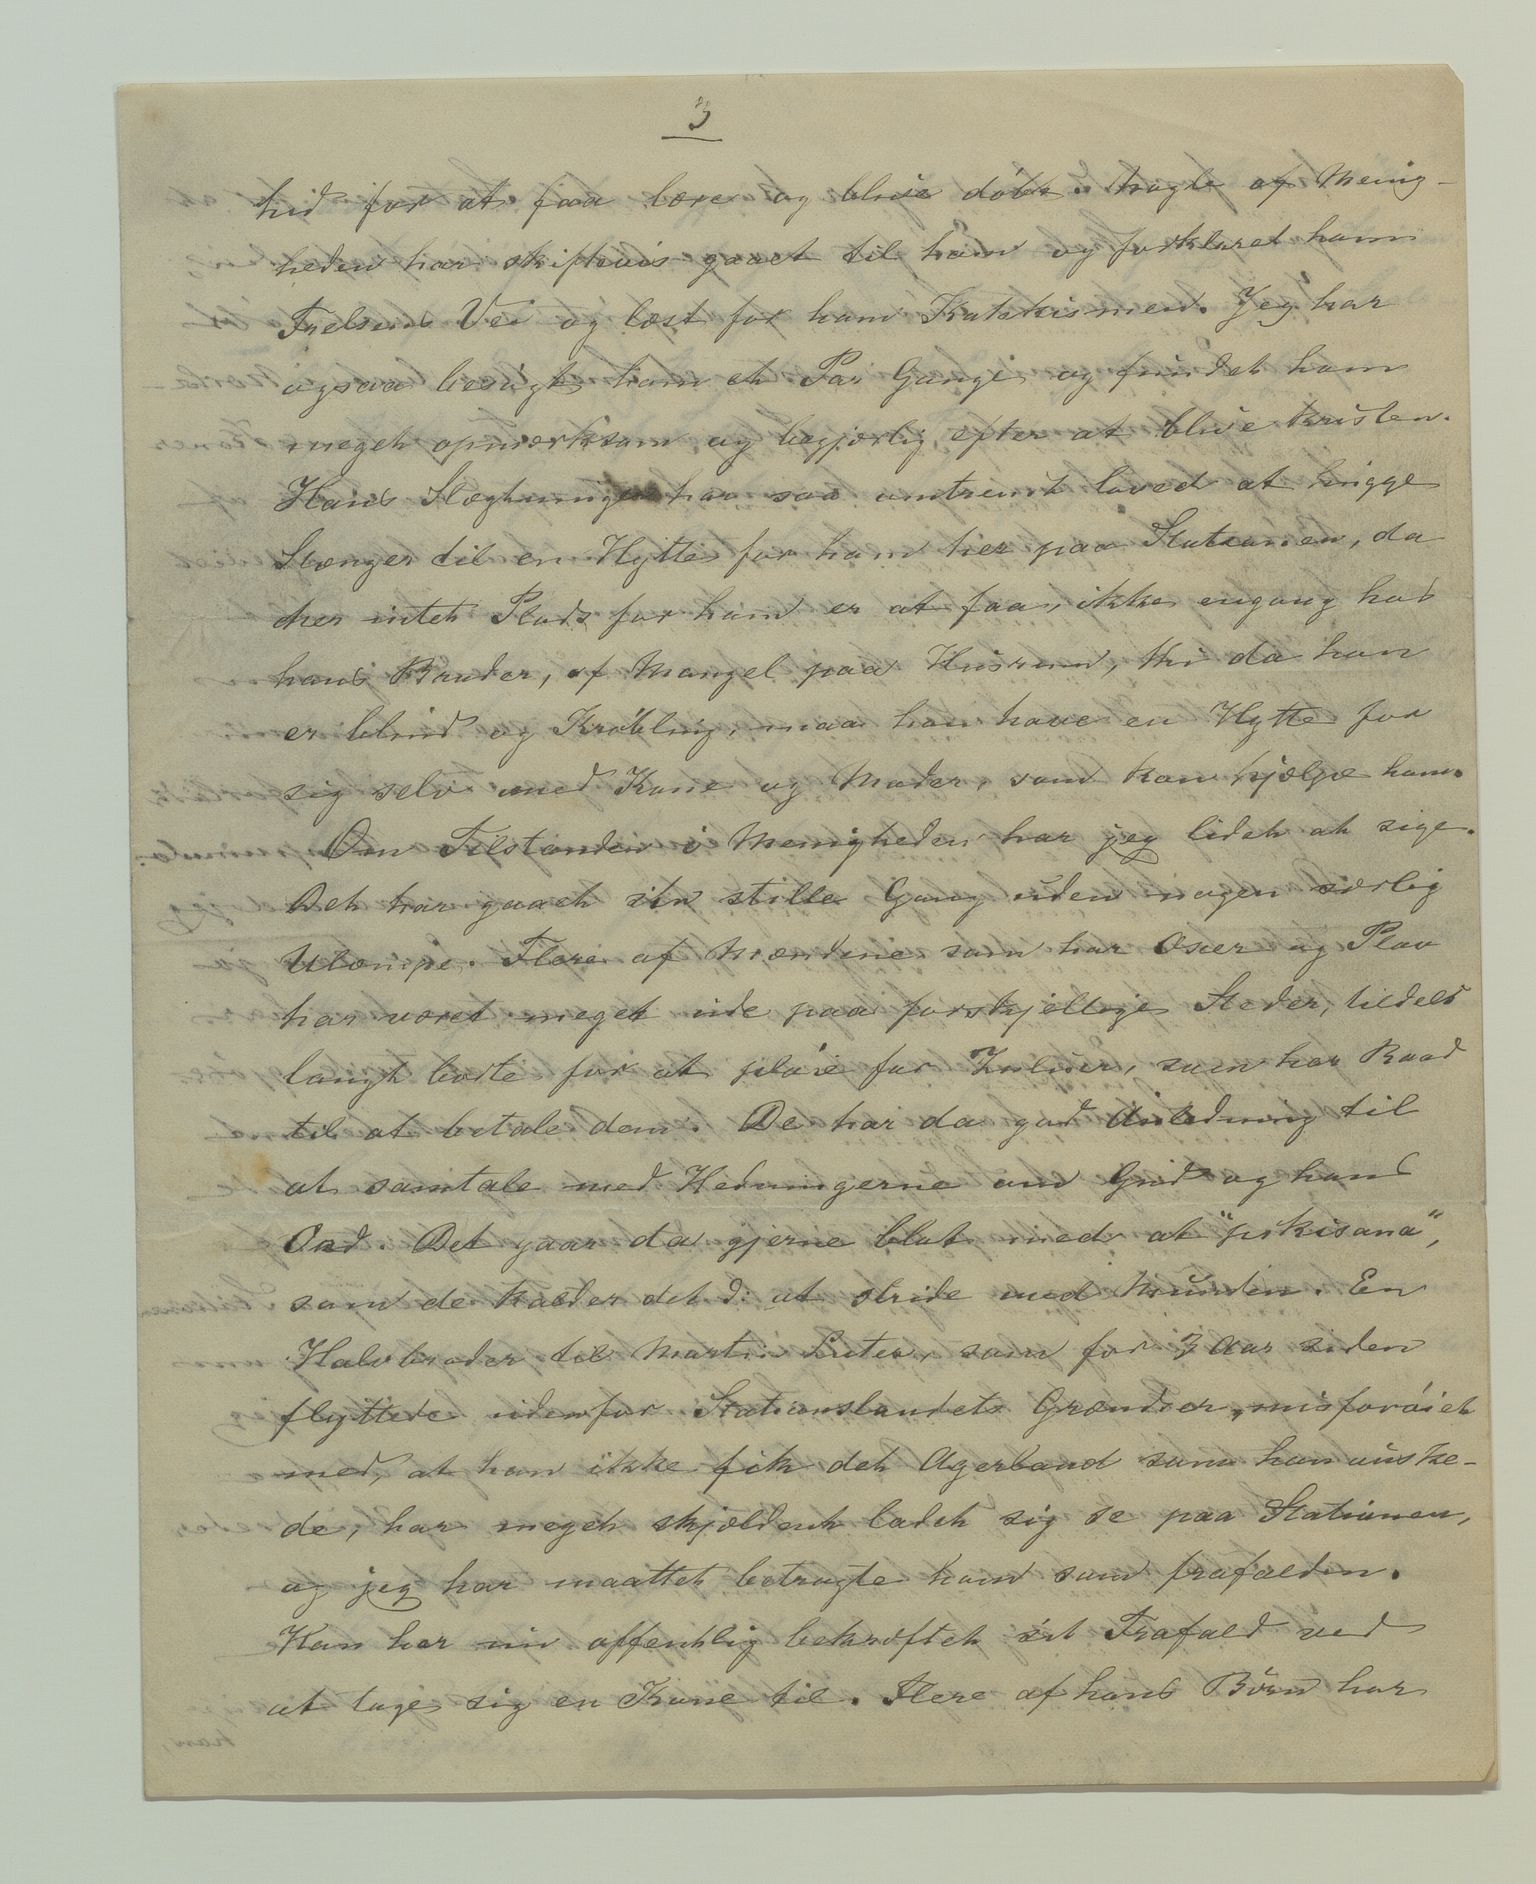 3
hid for at faa lære og blive döbt. Nogle af Menig-
heden har skiftevis gaaet til ham og forklaret ham
Frelsens Vei og læst for ham Katekismen. Jeg har
ogsaa besögt ham et Par Gange og fundet ham
meget opmærksom og begjærlig efter at blive Kristen.
Hans Slægtninger har saa omtrent loved at hugge
Stænger til en Hytte for ham her paa Stationen, da
her intet Plads for ham er at faa, ikke engang hos
hans Broder, af Mangel paa Husrum, thi da han
er blind og Kröbling, maa han have en Hytte for
sig selv med Kone og Moder, som kan hjælpe ham.
Om Tilstanden i Menigheden har jeg lidet at sige.
Det har gaaet sin stille Gang uden nogen særlig
Ulempe. Flere af Mændene som har Oxer og Plov
har været meget ude paa forskjellige Steder, tildels
langt borte for at plöie for Zuluer, som har Raad
til at betale dem. De har da god Anledning til
at samtale med Hedningerne om Gud og hans
Ord. Det gaar da gjerne blot med at "pikisana",
som de kalder det ɔ: at stride med Munden. En
Halvbroder til Martin Luter, som for 3 Aar siden
flyttede udenfor Stationslandets Grændser, misfornöiet
med, at han ikke fik det Agerland som han önske-
de, har meget skjældent ladet sig se paa Stationen,
og jeg har maattet betragte ham som frafalden.
Han har nu offentlig bekræftet sit Frafald ved
at tage sig en Kone til. Flere af hans Börn har